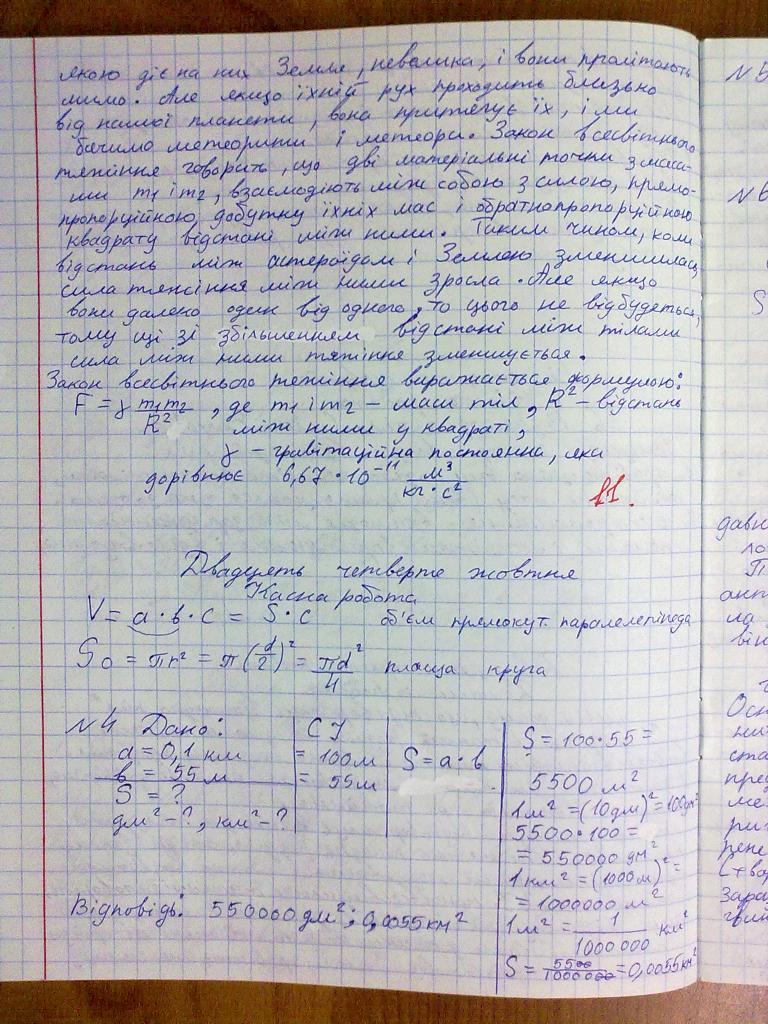 якою діє на них Земля, невелика, і вони пролітають
мимо. Але якщо їхній рух проходить близько
від нашої планети, вона притягує їх, і ми
бачимо метеорити і метеори. Закон всесвітнього
тяжіння говорить, що дві матеріальні точки з маса-
ми m₁ і m₂, взаємодіють між собою з силою, прямо-
пропорційною добутку їхніх мас і обратнопропорційною
квадрату відстані між ними. Таким чином, коли
відстань між астероїдом і Землею зменшилась,
сила тяжіння між ними зросла. Але якщо
вони далеко один від одного, то цього не відбудеться,
тому що зі збільшенням відстані між тілами
сила між ними тяжіння зменшується.
Закон всесвітнього тяжіння виражається формулою:
F = γ m₁m₂/R², де m₁ і m₂ – маси тіл, R² – відстань
між ними у квадраті,
γ – гравітаційна постоянна, яка
дорівнює 6,67 · 10⁻¹¹ м³/кг · с²
11.
Двадцять четверте жовтня
Класна робота
V = a · b · c = S · c об'єм прямокут. паралелепіпеда
S₀ = πr² = π(d/2)² = πd²/4 площа круга
№4 Дано:
a = 0,1 км
b = 55 м
S = ?
дм² – ?, км² – ?
СІ
= 100м
= 55м
S = a · b
S = 100 · 55 =
5500 м²
1м² = (10дм)² = 100дм²
5500 · 100 =
= 550000 дм²
1км² = (1000м)² =
= 1000000 м²
1м² = 1/1000000 км²
S = 5500/1000000 = 0,0055км²
Відповідь: 550000 дм²; 0,0055 км²
№5
№6
S
давн
ло
П
ант
ла
він
Осн
ни
ста
пред
ме
ри
рене
(твор
зара